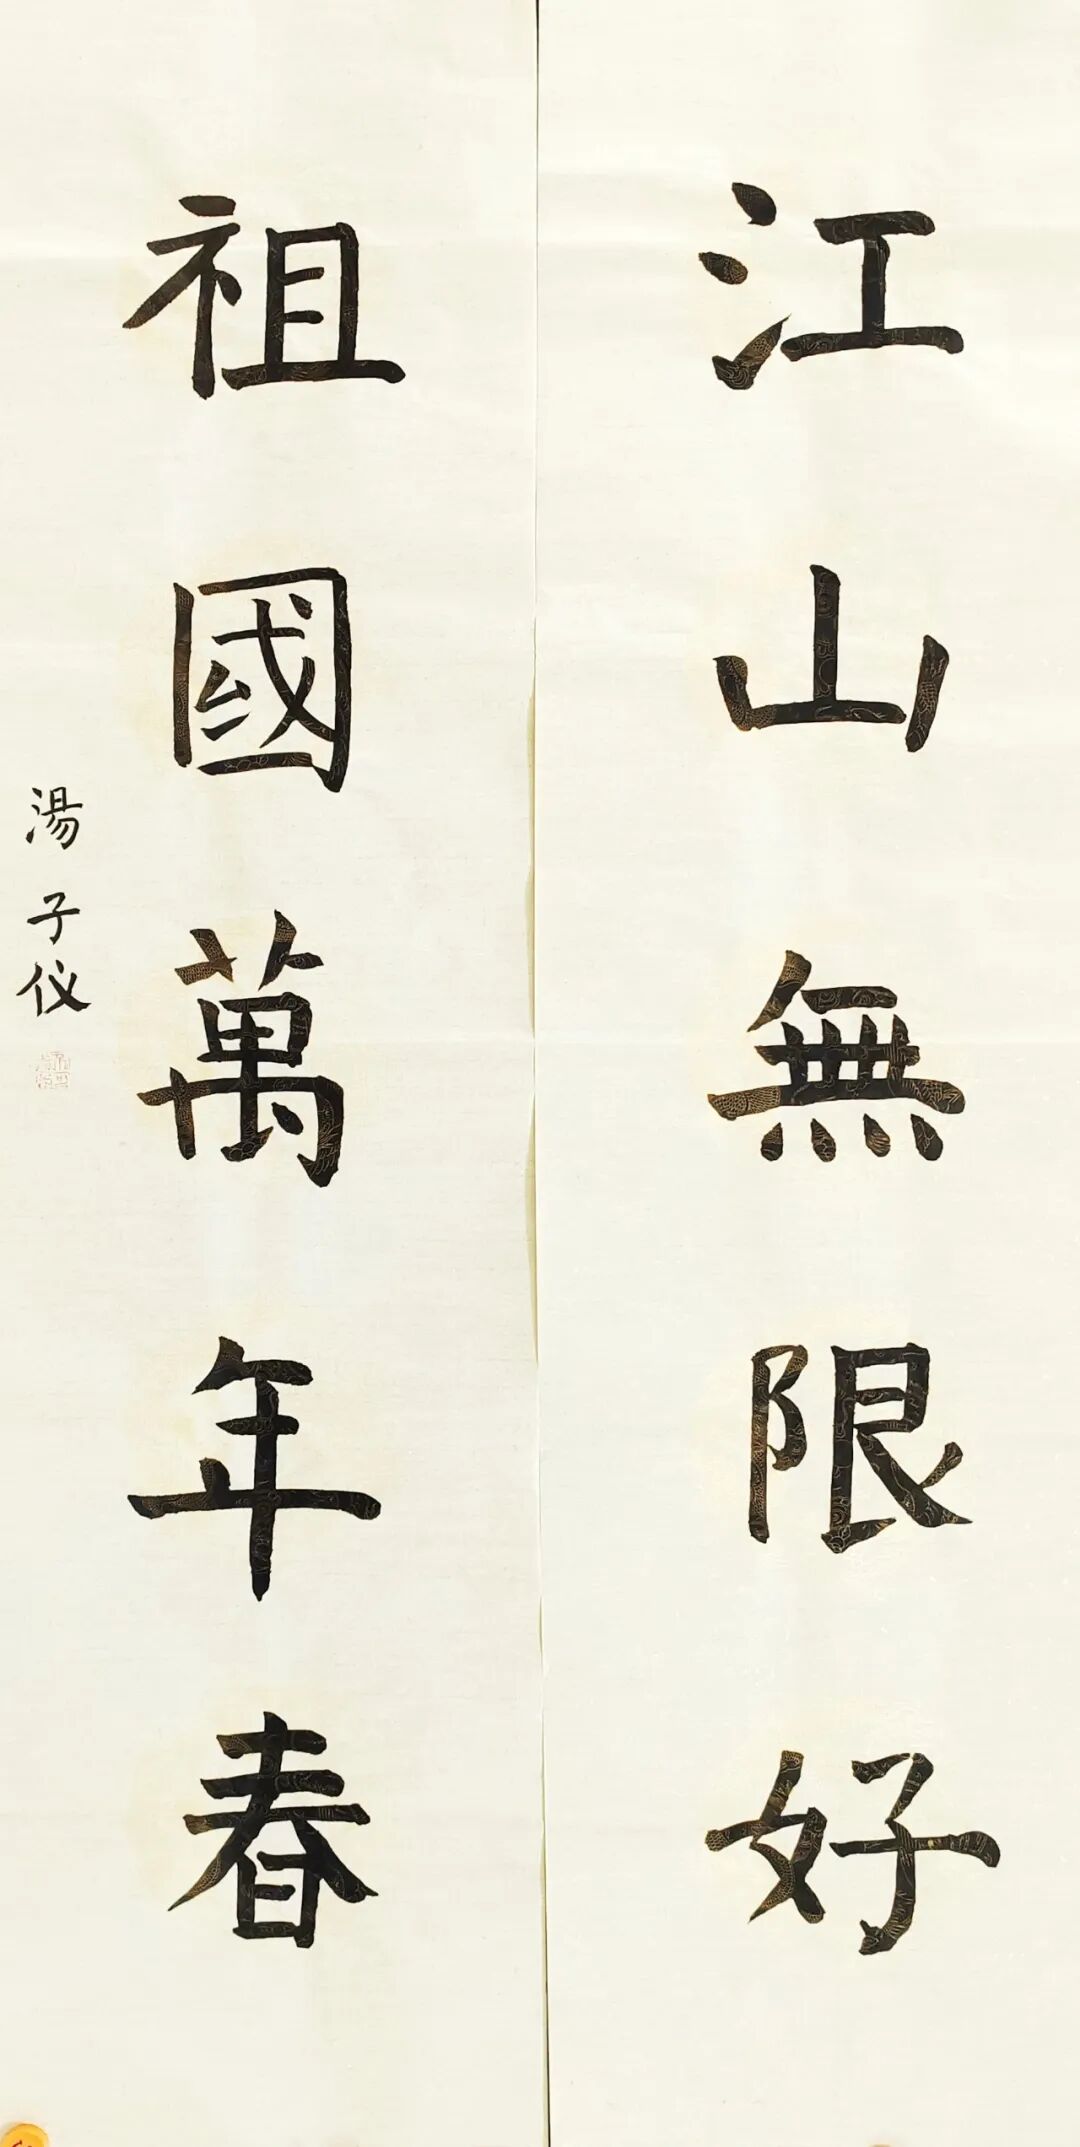 江山無限好
祖國萬年春
湯子仪